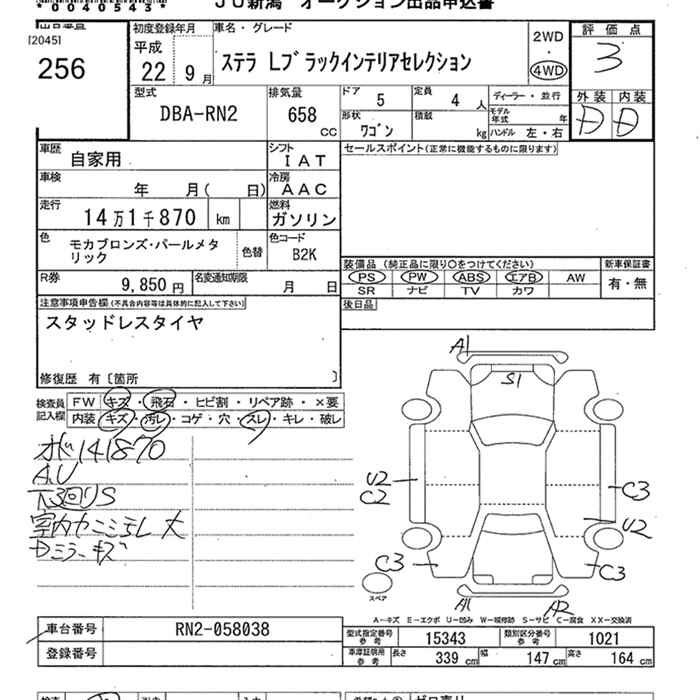 *0040543*
JU新潟 オークション出品申込書
出品番号
[2045]
256
初度登録年月
平成
22年 9月
車名・グレード
ステラ Lブラックインテリアセレクション
2WD
・
4WD
評価点
3
外装 内装
D D
型式
DBA-RN2
排気量
658 cc
ドア
5
定員
4 人
ディーラー・並行
形状
ワゴン
積載
kg
モデル年式 年
ハンドル 左・右
車歴
自家用
シフト
IAT
セールスポイント(正常に機能するものに限ります)
車検
年 月( 日)
冷房
AAC
走行
14万1千870 km
燃料
ガソリン
色
モカブロンズ・パールメタリック
色替
色コード
B2K
装備品 (純正品に限り○をつけてください)
新車保証書
PS PW ABS エアB AW
有・無
SR ナビ TV カワ
R券
9,850円
名変通知期限
月 日
後日品
注意事項申告欄(不具合内容等は具体的に記入して下さい)
スタッドレスタイヤ
修復歴 有〔箇所 〕
検査員記入欄
FW キズ・飛石・ヒビ割・リペア跡・×要
内装 キズ・汚レ・コゲ・穴・スレ・キレ・破レ
141870
A.U
下3回りS
A1
S1
U2
C2
C3
U2
C3
C3
スペア
A1
A2
A-キズ E-エクボ U-凹み W-補修跡 S-サビ C-腐食 XX-交換済
車台番号
RN2-058038
登録番号
型式指定番号 参考
15343
類別区分番号 参考
1021
車庫証明用 参考
長さ 339 cm 幅 147 cm 高さ 164 cm